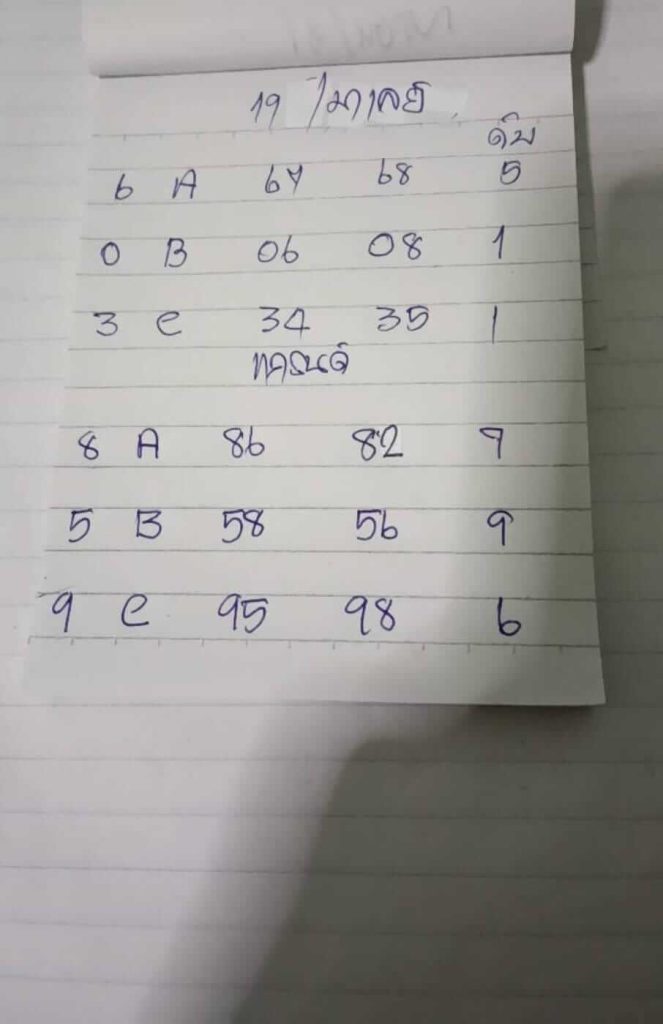 19 / มาเลย์
ดับ
6 A 67 68 5
0 B 06 08 1
3 C 34 35 1
8 A 86 82 9
5 B 58 56 9
9 C 95 98 6